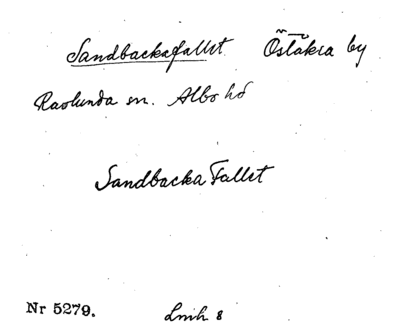 Sandbackafallet Öståkra by
Ravlunda sn. Albo hd
Sandbacka Fallet
Nr 5279. Lmh 8